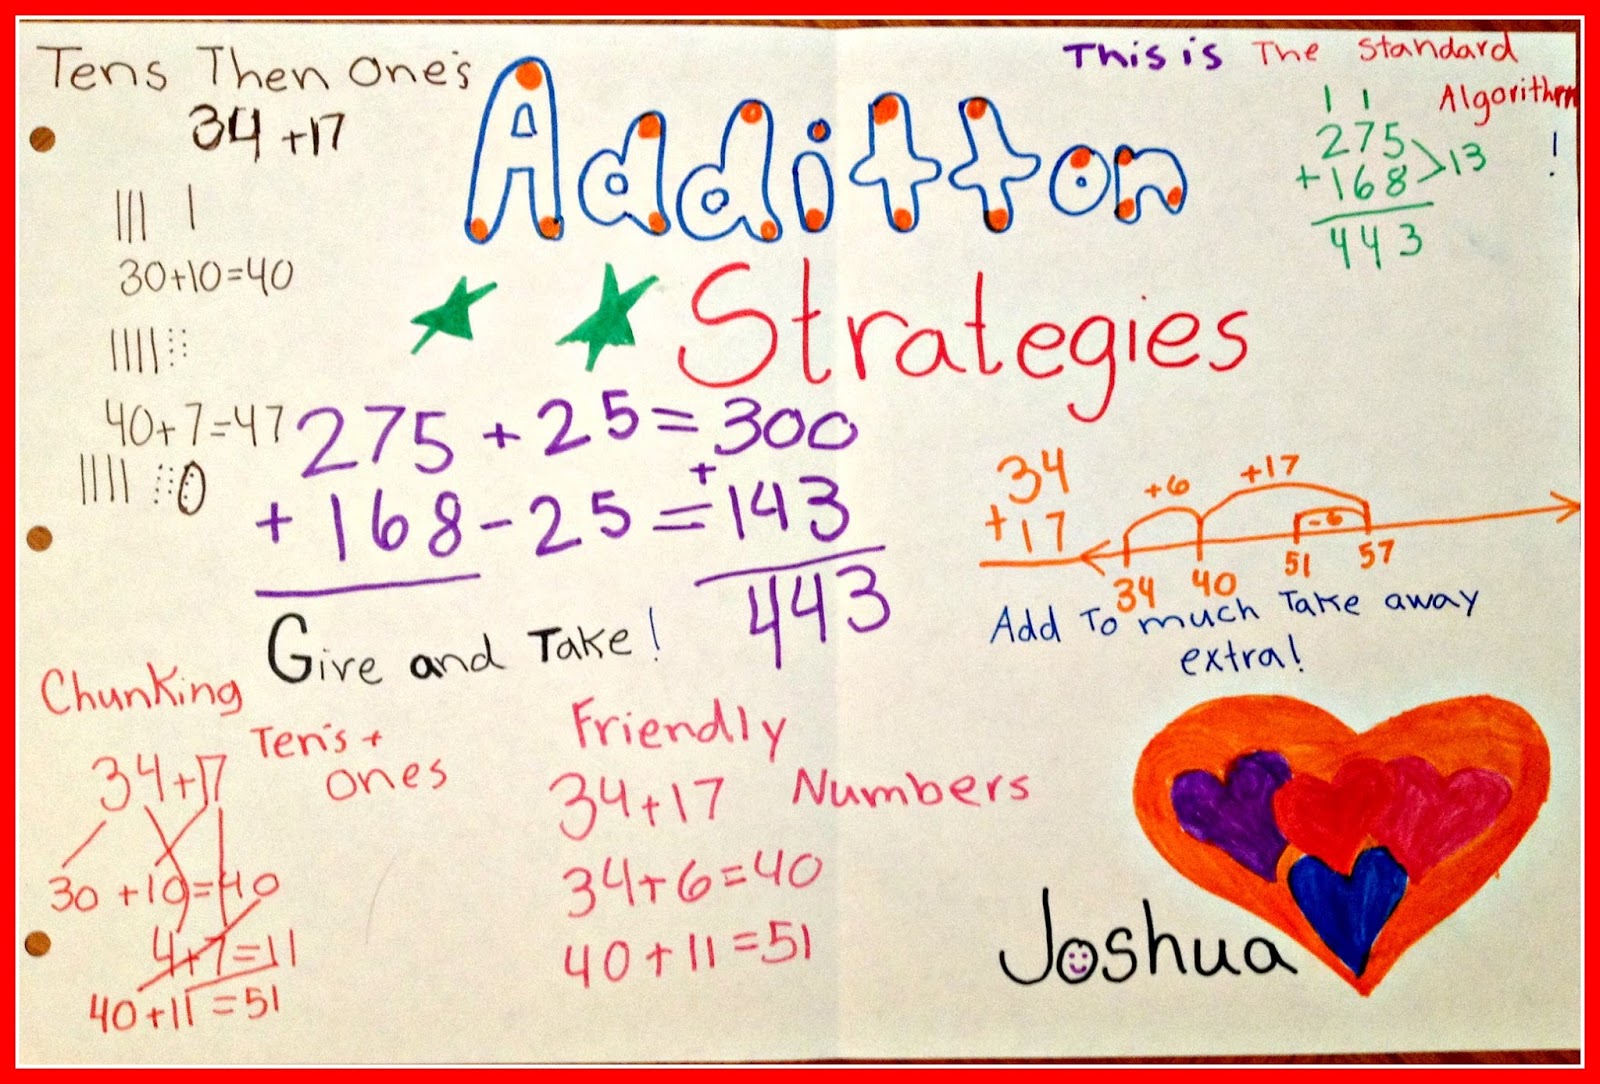 Tens Then One's
34 +17
30+10=40
40+7=47
Additton
Strategies
This is The Standard
Algorithm
!
1 1
275
+168 >13
443
275 + 25 = 300
+ 168 - 25 = + 143
443
Give and Take!
34
+17
+6 +17
-6
34 40 51 57
Add To much Take away
extra!
Chunking
Ten's +
ones
34+17
30 +10=40
4+7=11
40+11=51
Friendly
Numbers
34+17
34+6=40
40+11=51
Joshua